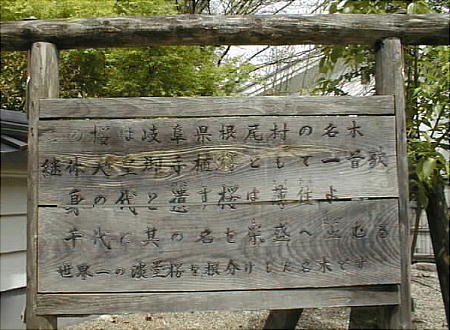 この桜は岐阜県根尾村の名木
継体天皇御手植桜として一首詠
身の代と遺す桜は薄住よ
千代に其の名を栄盛へ止むる
世界一の淡墨桜を根分けした名木です